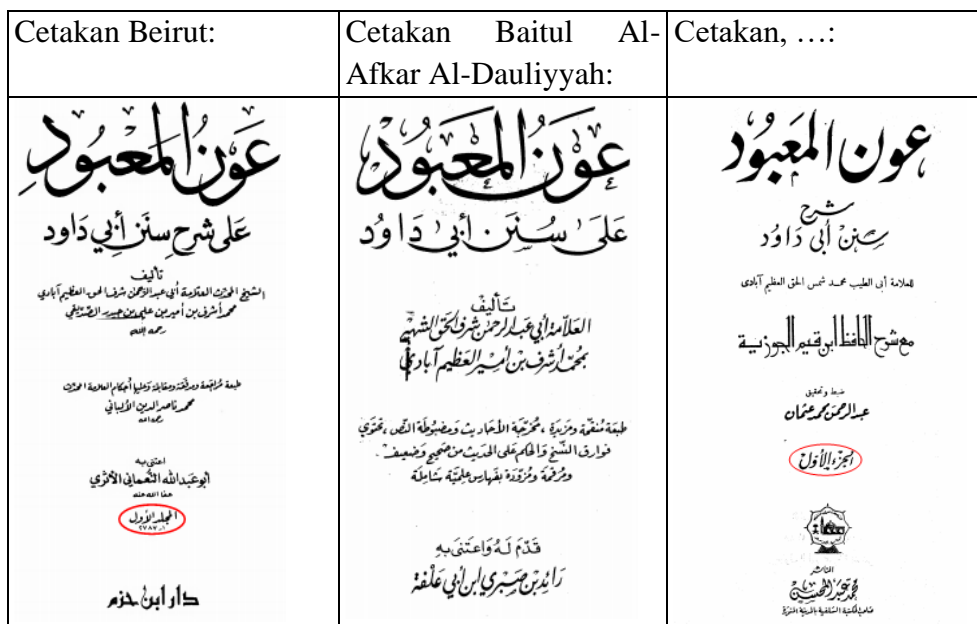 Cetakan Beirut:
Cetakan Baitul Al-
Afkar Al-Dauliyyah:
Cetakan, …:
عَوْنُ المَعْبُودِ
عَلى شرح سنَن أبي دَاود
تأليف
الشيخ المحدث العلامة أبي عبد الرحمن شرف الحق العظيم آبادي
محمد أشرف بن أمير بن علي بن حيدر الصديقي
رحمه الله
طبعة مُراجعة ومرقّمة ومقابلة وعليها أحكام العلامة المحدث
محمد ناصر الدين الألباني
رحمه الله
اعتنى به
أبو عَبد الله النُّعماني الأثري
عفا الله عنه
المجلد الأول
١ - ٢٧٨٧
دار ابن حزم
عَوْنُ المَعْبُودْ
عَلَى سُنَن أبي دَاوُد
تَأليفُ
العَلّامَة أبي عَبد الرحمن شرف الحَق الشهير
بمُحمّد أشرف بن أمير العَظيم آبادي
طبعَة مُنقّحة ومَزيدَة ، مُخرّجَة الأحَاديث وَمضبُوطَة النّص ، تحتَوي
فوارق النُّسخ وَالحكم عَلى الحَديث من صَحيح وَضعيف .
ومُرقمة وَمُزوّدَة بفهَارس علميَّة شَاملَة
قَدّمَ لَهُ وَاعتَنى بهِ
رَائد بن صَبري ابن أبي عَلفَة
عون المَعبُود
شرح
سنن أبي دَاوُد
للعلامة أبى الطيب محمد شمس الحق العظيم آبادى
مع شرح الحافظ ابن قيم الجوزية
ضبط وتحقيق
عبد الرحمن محمد عثمان
الجزء الأول
الناشر
محمد عبد المحسن
صاحب المكتبة السلفية بالمدينة المنورة